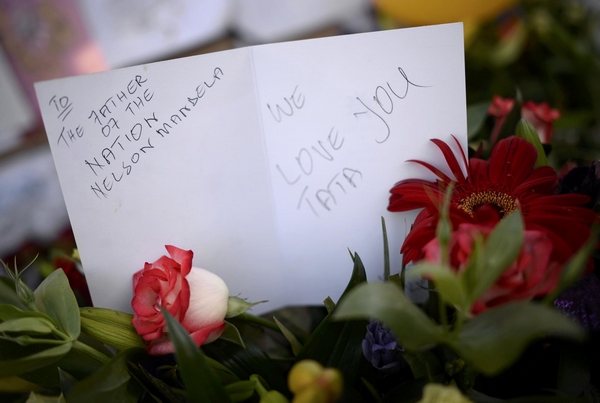 TO
THE FATHER
OF THE
NATION
NELSON MANDELA
WE
LOVE YOU
TATA